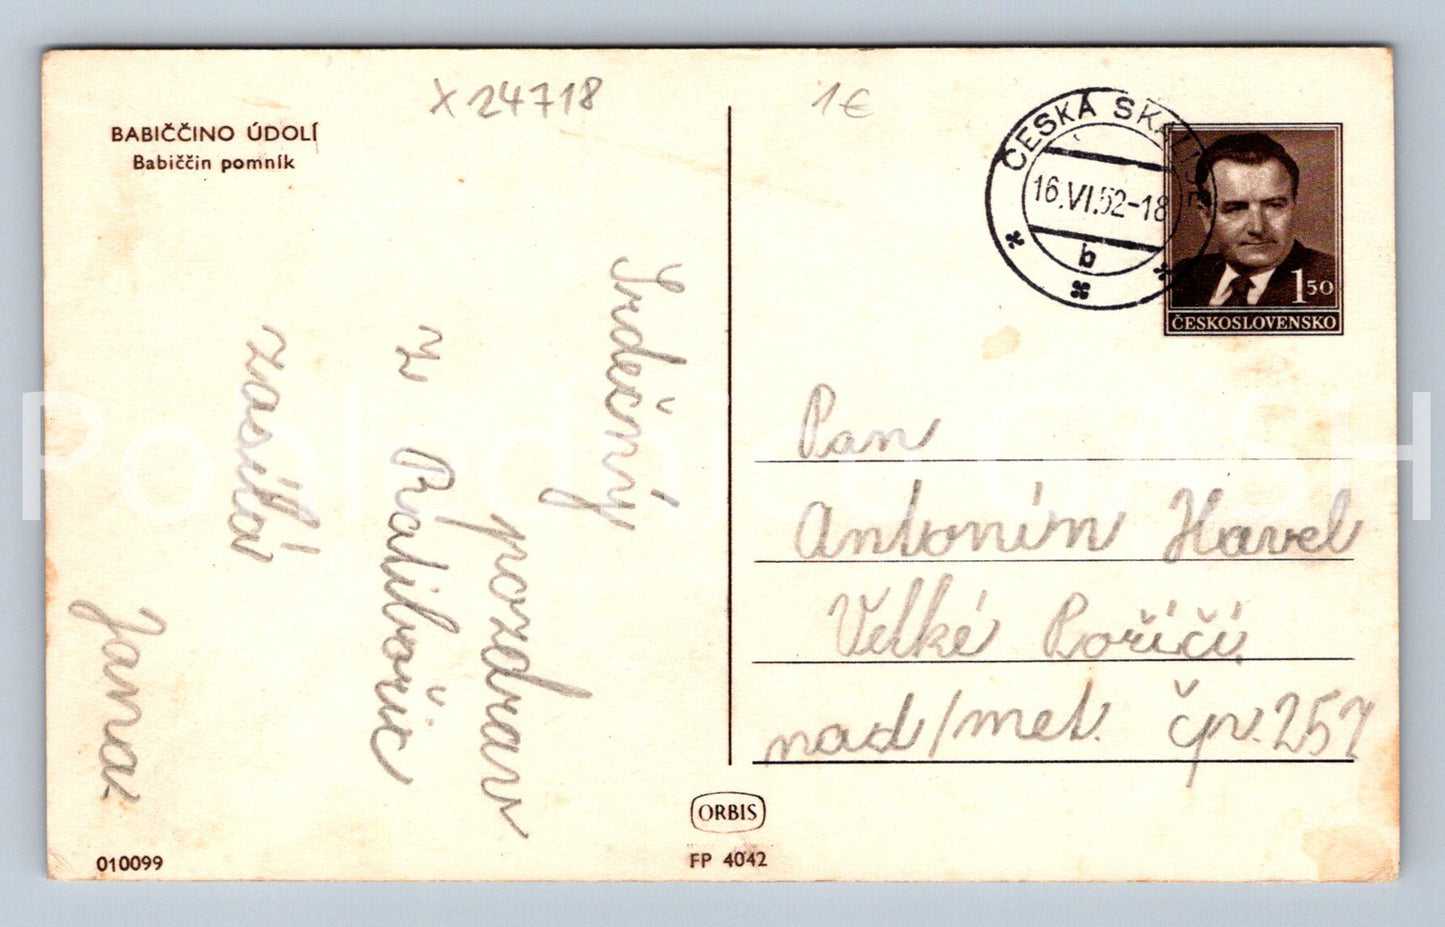 X 24718
1€
BABIČČINO ÚDOLÍ
Babiččin pomník
ČESKÁ SKALICE
16.VI.52-18
b
1 50
ČESKOSLOVENSKO
Srdečný
pozdrav
z Ratibořic
zasílá
Jana
Pan
Antonín Havel
Velké Poříčí
nad/met. čp. 257
ORBIS
FP 4042
010099
Pohlednice CASH